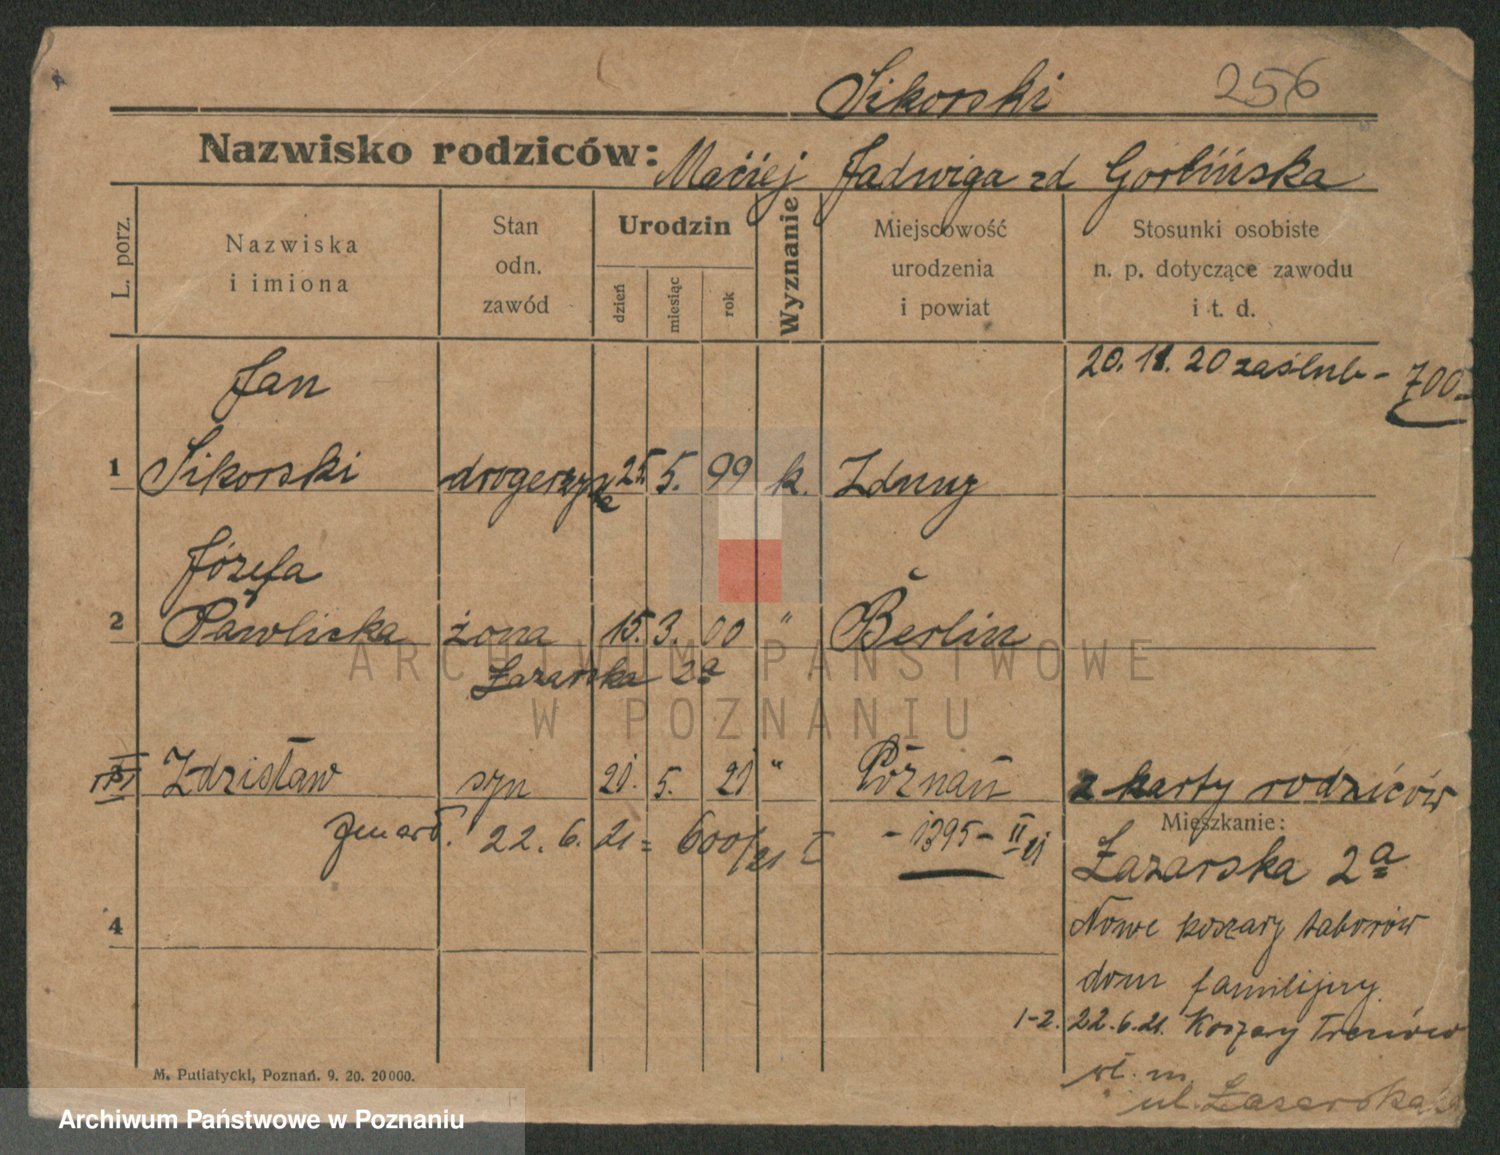 Sikorski 256
Nazwisko rodziców: Maciej Jadwiga zd Gorlińska
L. porz.
Nazwiska
i imiona
Stan
odn.
zawód
Urodzin
dzień
miesiąc
rok
Wyznanie
Miejscowość
urodzenia
i powiat
Stosunki osobiste
n. p. dotyczące zawodu
i t. d.
20. 11. 20 zaślub - 700
Jan
1 Sikorski drogerzysta 25. 5. 99 k. Zduny
Józefa
2 Pawlicka żona 15. 3. 00 " Berlin
Łazarska 2a
Zdzisław syn 21. 5. 21 " Poznań z karty rodziców
22. 6. 21 = 600/21 - 1395 - II 21
Mieszkanie:
Łazarska 2a
4
Nowe koszary taborów
dom familijny
1-2. 22.6.21. Koszary Trenów
ul. Łazarska 2a
M. Putiatycki, Poznań. 9. 20. 20000.
ARCHIWUM PAŃSTWOWE
W POZNANIU
Archiwum Państwowe w Poznaniu